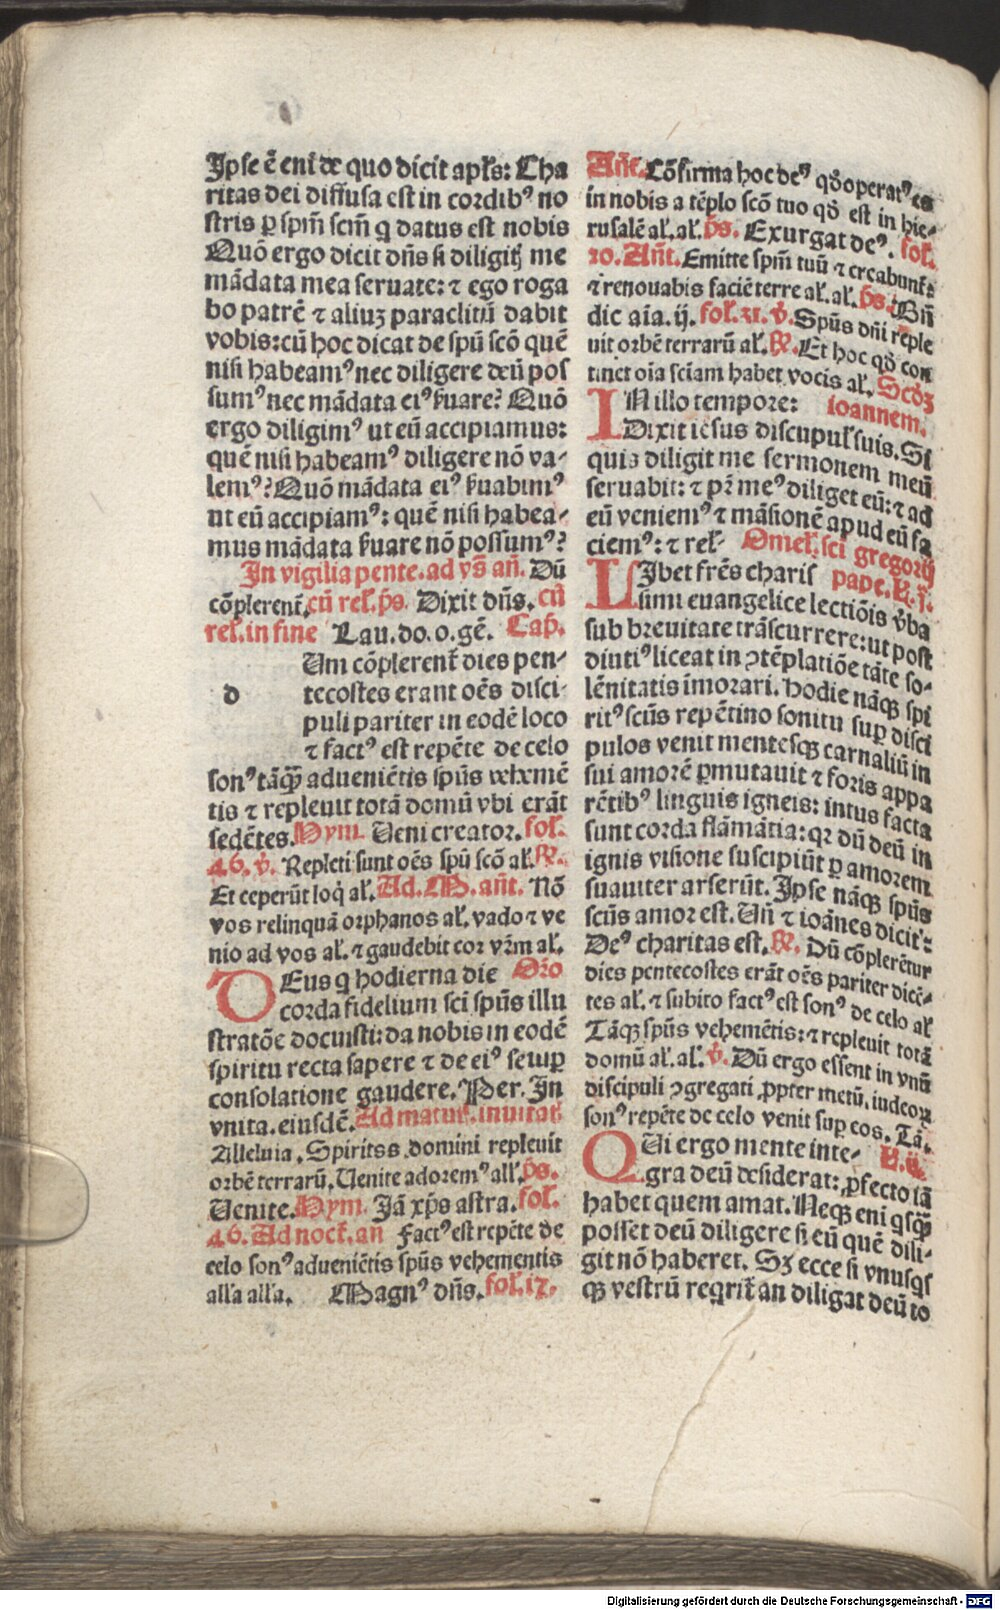 Ipse ē enī de quo dicit apl's: Cha
ritas dei diffusa est in cordibꝰ no
stris ꝑ spm̄ scm̄ q̄ datus est nobis
Quō ergo dicit dn̄s si diligitꝭ me
mādata mea seruate: ⁊ ego roga
bo patrē ⁊ aliuꝫ paraclitū dabit
vobis: cū hoc dicat de spū scō quē
nisi habeamꝰ nec diligere deū pos
sumꝰ nec mādata eiꝰ ẜuare? Quō
ergo diligimꝰ ut eū accipiamus:
quē nisi habeamꝰ diligere nō va-
lemꝰ? Quō mādata eiꝰ ẜuabimꝰ
ut eū accipiamꝰ: quē nisi habea-
mus mādata ẜuare nō possumꝰ?
In vigilia pente. ad vs̄ an̄. Dū
cōplerent̄. cū rel'. p̄s. Dixit dn̄s. cū
rel'. in fine Lau. do. o. gē. Cap̄.
d Um cōplerent̄ dies pen-
tecostes erant oēs disci-
puli pariter in eodē loco
⁊ factꝰ est repēte de celo
sonꝰ tāꝙ̄ adueniētis spūs vehemē
tis ⁊ repleuit totā domū vbi erāt
sedētes. Hym. Ueni creator. fol'.
46. v̄. Repleti sunt oēs spū scō al'. ꝶ.
Et ceperūt loq̄ al'. Ad. M. an̄t. Nō
vos relinquā orphanos al'. vado ⁊ ve
nio ad vos al'. ⁊ gaudebit cor vr̄m al'.
DEus q̄ hodierna die Orō
corda fidelium scī spūs illu
stratōe docuisti: da nobis in eodē
spiritu recta sapere ⁊ de eiꝰ semꝑ
consolatione gaudere. Per. In
vnita. eiusdē. Ad matut̄. inuitat̄
Alleluia. Spiritss domini repleuit
orbē terrarū. Uenite adoremꝰ all'. p̄s.
Uenite. Hym. Jā xp̄s astra. fol'.
46. Ad noct̄. an̄ Factꝰ est repēte de
celo sonꝰ adueniētis spūs vehementis
all'a all'a. Magnꝰ dn̄s. fol'. ix.
An̄t. Cōfirma hoc deꝰ qd̄ operatꝰ es
in nobis a tēplo scō tuo qd̄ est in hie-
rusalē al'. al'. p̄s. Exurgat deꝰ. fol'.
20. An̄t. Emitte spm̄ tuū ⁊ creabunt̄:
⁊ renouabis faciē terre al'. al'. p̄s. Bn̄
dic aīa. ij. fol'. 31. v̄. Spūs dn̄i reple
uit orbē terrarū al'. ꝶ. Et hoc qd̄ con
tinet oīa sciam habet vocis al'. Scd̄ꝫ
IN illo tempore: ioannem.
Dixit iesus discipul' suis. Si
quis diligit me sermonem meū
seruabit: ⁊ pr̄ meꝰ diliget eū: ⁊ ad
eū veniemꝰ ⁊ māsionē apud eū fa
ciemꝰ: ⁊ rel'- Omel'. scī gregorij
LIbet fr̄es charis pape. L. j.
simi euangelice lectiōis v̄ba
sub breuitate trāscurrere: ut post
diutiꝰ liceat in ꝯtēplatiōe tāte so-
lēnitatis īmorari. Hodie nāqꝫ spi
ritꝰ scūs repētino sonitu sup̄ disci
pulos venit mentesqꝫ carnaliū in
sui amorē ꝑmutauit ⁊ foris appa
rētibꝰ linguis igneis: intus facta
sunt corda flāmātia: qꝛ dū deū in
ignis visione suscipiūt ꝑ amorem
suauiter arserūt. Ipse nāqꝫ spūs
scūs amor est. Un̄ ⁊ ioānes dicit:
Deꝰ charitas est. ꝶ. Dū cōplerētur
dies pentecostes erāt oēs pariter dicē-
tes al'. ⁊ subito factꝰ est sonꝰ de celo al'
Tāqꝫ spūs vehemētis: ⁊ repleuit totā
domū al'. al'. v̄. Dū ergo essent in vnū
discipuli ꝯgregati ꝓpter metū. iudeoꝝ
sonꝰ repēte de celo venit sup̄ eos. Tā.
QUi ergo mente inte- L. ij.
gra deū desiderat: ꝓfecto iā
habet quem amat. Neqꝫ eni q̄sꝙ̄
posset deū diligere si eū quē dili-
git nō haberet. Sꝫ ecce si vnusqs̄
qꝫ vestrū reqrit̄ an diligat deū to
Digitalisierung gefördert durch die Deutsche Forschungsgemeinschaft - DFG